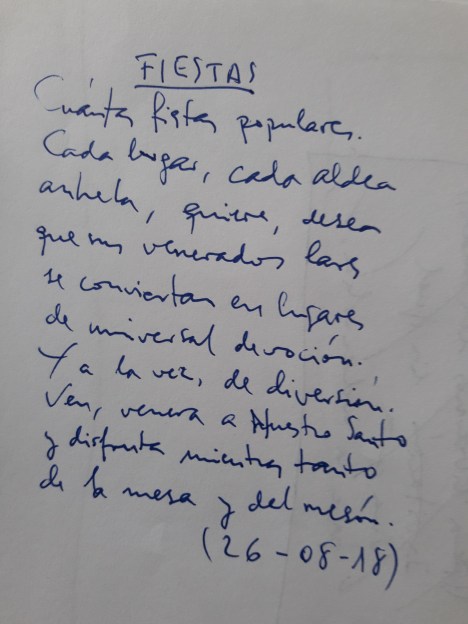 FIESTAS
Cuántas fiestas populares.
Cada lugar, cada aldea
anhela, quiere, desea
que sus venerados lares
se conviertan en lugares
de universal devoción.
Y a la vez, de diversión.
Ven, venera a Nuestro Santo
y disfruta mientras tanto
de la mesa y del mesón.
(26-08-18)